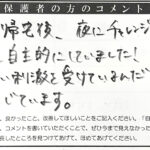 保護者の方のコメント
帰宅後、夜にチャレンジ
自主的にしていました!
い刺激を受けているんだ
じています。
、良かったこと、改善してほしいことをご記入ください。「自
、コメントを書いていただくことで、ぜひ今まで見えなかった
長したところを見つけてあげて、ほめてあげてください。